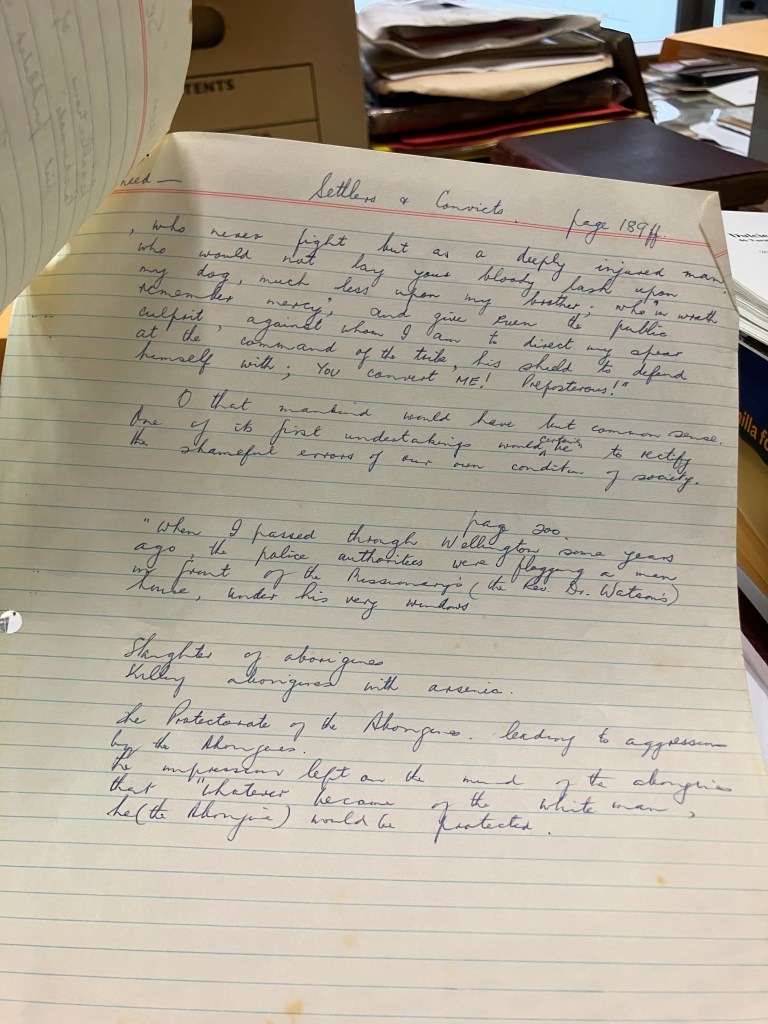 TENTS
need —
Settlers & Convicts. page 189ff
, who never fight but as a deeply injured man
who would not lay your bloody lash upon
my dog, much less upon my brother; who "in wrath
remember mercy", and give even the public
culprit, against whom I am to direct my spear
at the command of the tribe, his shield to defend
himself with; YOU convert ME! Preposterous!"
O that mankind would have but common sense.
One of its first undertakings would certainly be to rectify
the shameful errors of our own condition of society.
page 200.
"When I passed through Wellington some years
ago, the police authorities were flogging a man
in front of the Missionary's (the Rev. Dr. Watson's)
house, under his very windows
Slaughter of aborigines
Killing aborigines with arsenic.
The Protectorate of the Aborigines. leading to aggression
by the Aborigines.
The impression left on the mind of the aborigines
that "whatever became of the white man,
he (the Aborigine) would be protected.